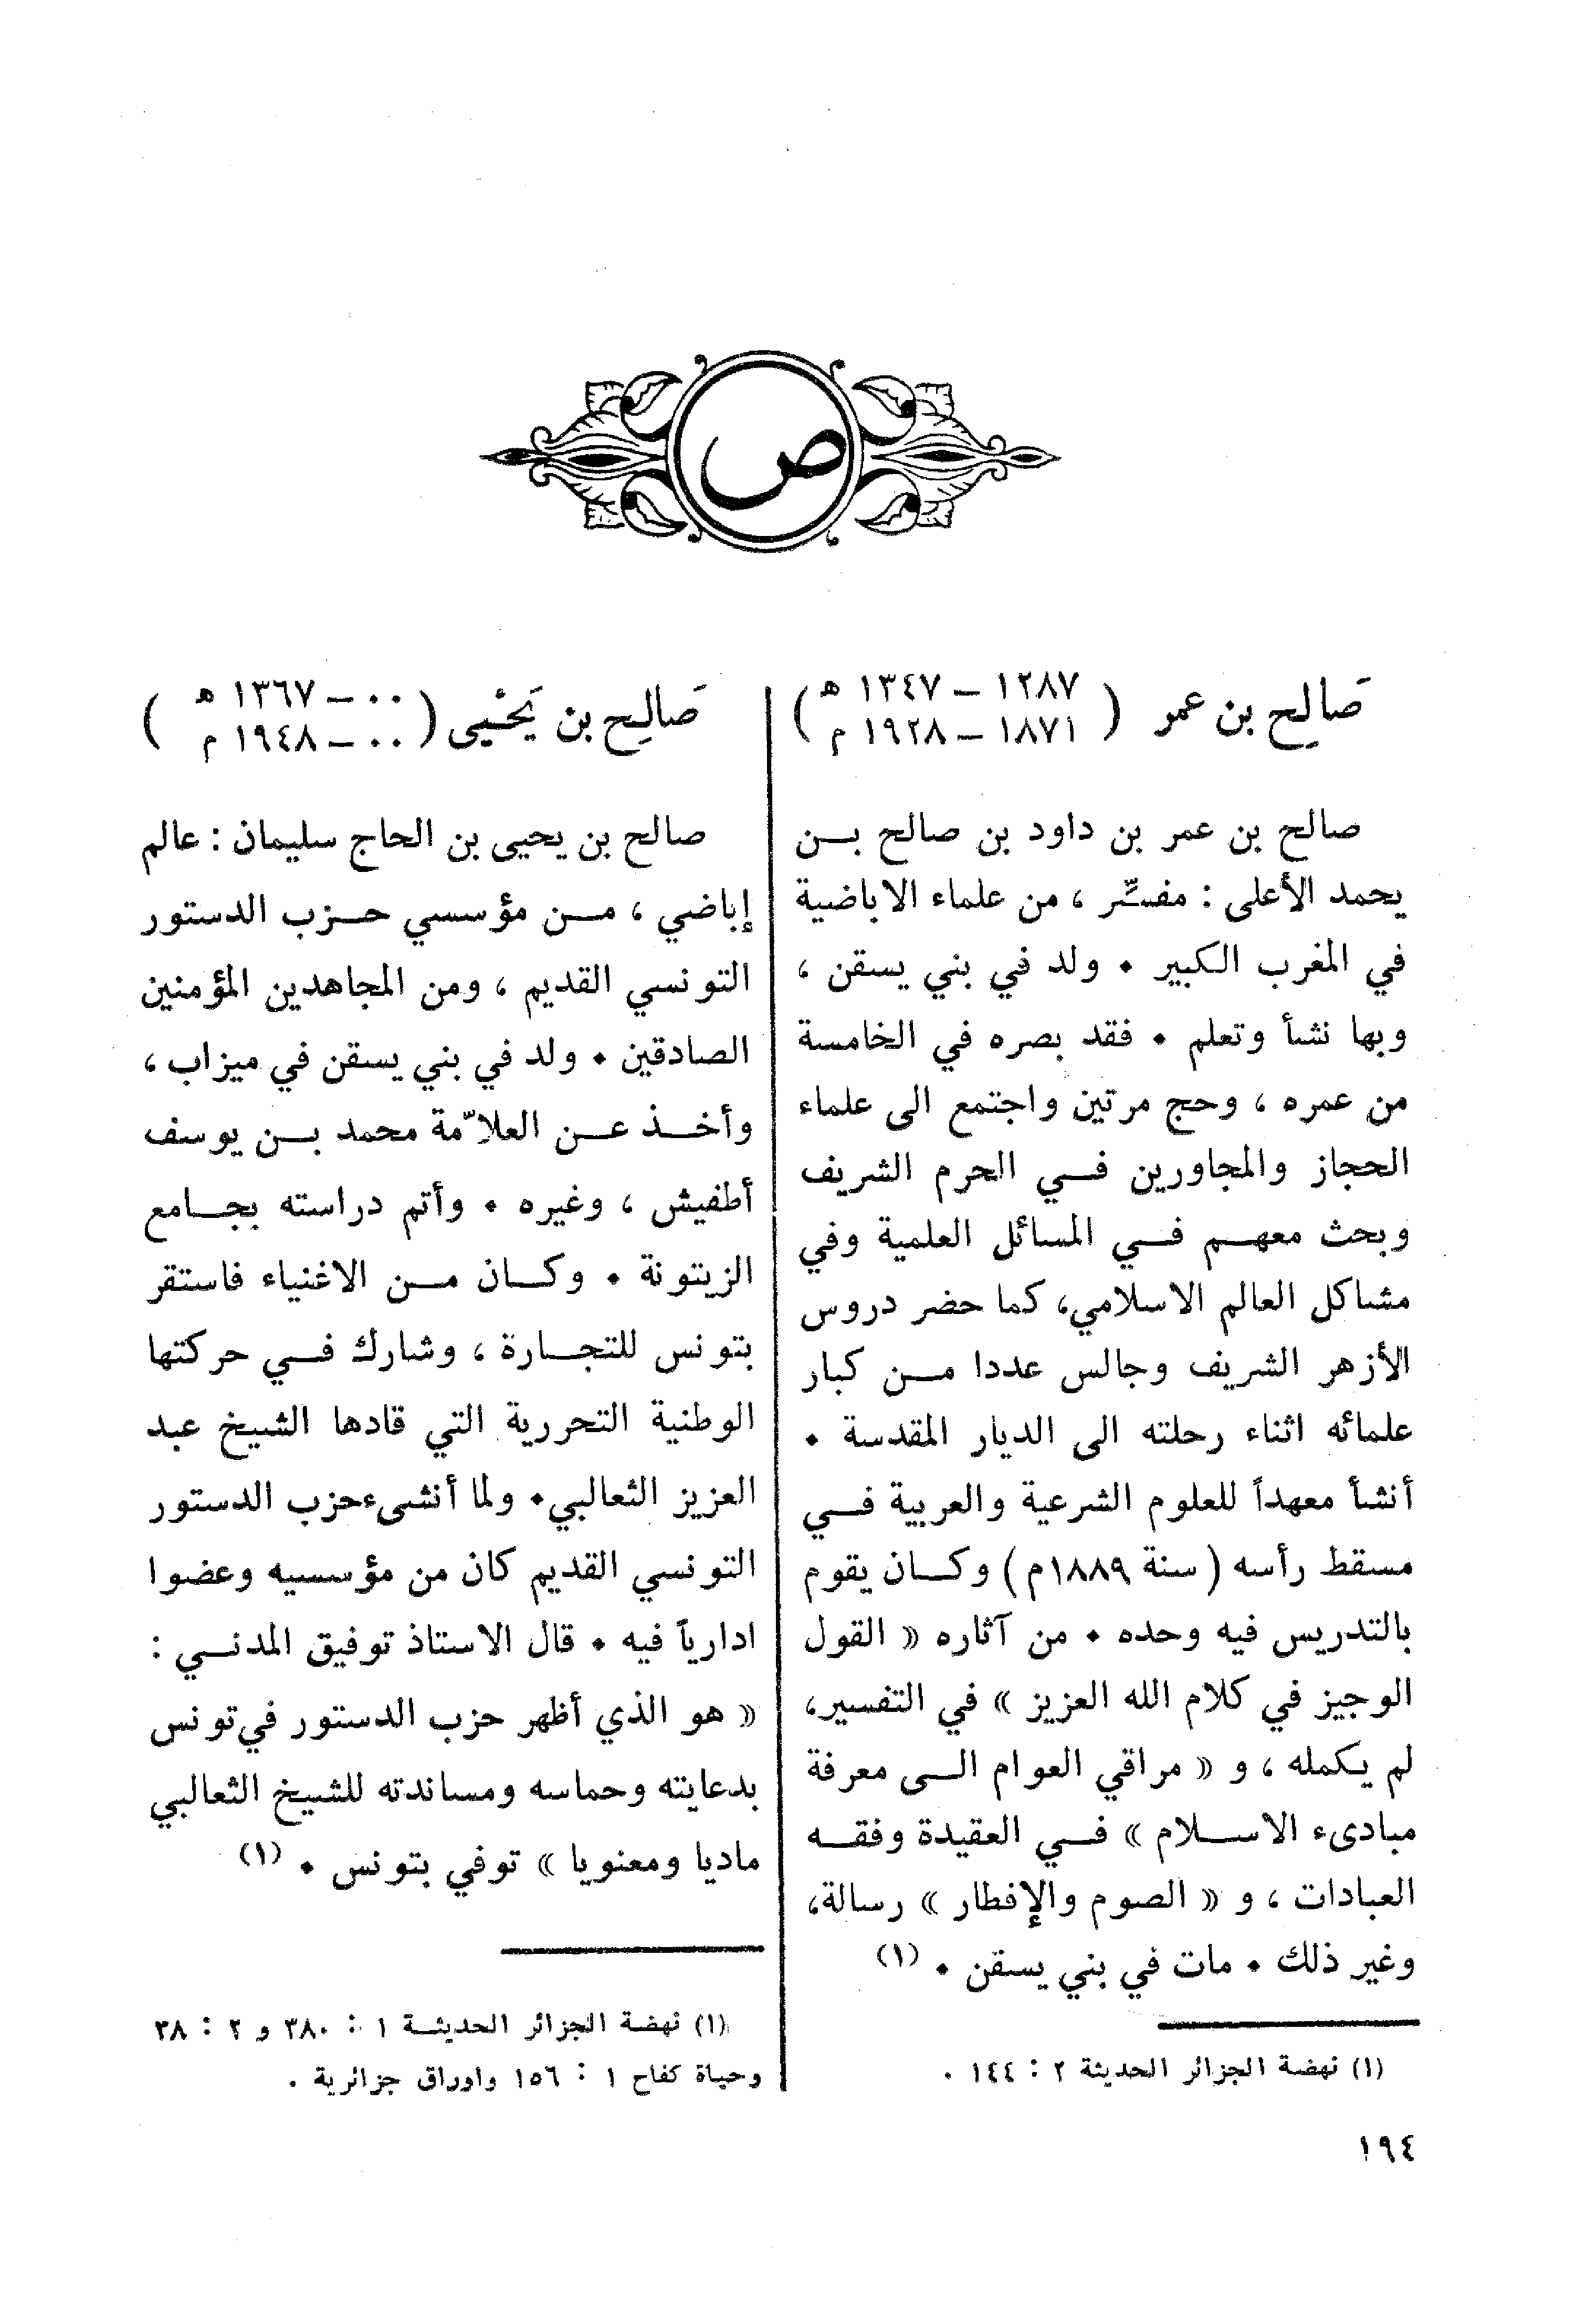 ص
صَالِح بن عمر ( ١٢٨٧ – ١٣٤٧ ه
١٨٧١ – ١٩٢٨ م )
صالح بن عمر بن داود بن صالح بــن
يحمد الأعلى : مفسِّر ، من علماء الاباضية
في المغرب الكبير . ولد في بني يسقن ،
وبها نشأ وتعلم . فقد بصره في الخامسة
من عمره ، وحج مرتين واجتمع الى علماء
الحجاز والمجاورين فــي الحرم الشريف
وبحث معهــم فــي المسائل العلمية وفي
مشاكل العالم الاسلامي، كما حضر دروس
الأزهر الشريف وجالس عددا مــن كبار
علمائه اثناء رحلته الى الديار المقدسة .
أنشأ معهداً للعلوم الشرعية والعربية فــي
مسقط رأسه ( سنة ١٨٨٩م ) وكــان يقوم
بالتدريس فيه وحده . من آثاره « القول
الوجيز في كلام الله العزيز » في التفسير،
لم يكمله ، و « مراقي العوام الــى معرفة
مبادىء الاســلام » فــي العقيدة وفقــه
العبادات ، و « الصوم والإفطار » رسالة،
وغير ذلك . مات في بني يسقن . (١)
(١) نهضة الجزائر الحديثة ٢ : ١٤٤ .
صَالِح بن يَحْيى ( ٠٠ – ١٣٦٧ ه
٠٠ – ١٩٤٨ م )
صالح بن يحيى بن الحاج سليمان : عالم
إباضي ، مــن مؤسسي حــزب الدستور
التونسي القديم ، ومن المجاهدين المؤمنين
الصادقين . ولد في بني يسقن في ميزاب ،
وأخــذ عــن العلاّمة محمد بــن يوسف
أطفيش ، وغيره . وأتم دراسته بجــامع
الزيتونة . وكــان مــن الاغنياء فاستقر
بتونس للتجــارة ، وشارك فــي حركتها
الوطنية التحررية التي قادها الشيخ عبد
العزيز الثعالبي. ولما أنشىء حزب الدستور
التونسي القديم كان من مؤسسيه وعضوا
ادارياً فيه . قال الاستاذ توفيق المدنــي :
« هو الذي أظهر حزب الدستور في تونس
بدعايته وحماسه ومساندته للشيخ الثعالبي
ماديا ومعنويا » توفي بتونس . (١)
(١) نهضة الجزائر الحديثــة ١ : ٣٨٠ و ٢ : ٣٨
وحياة كفاح ١ : ١٥٦ واوراق جزائرية .
١٩٤